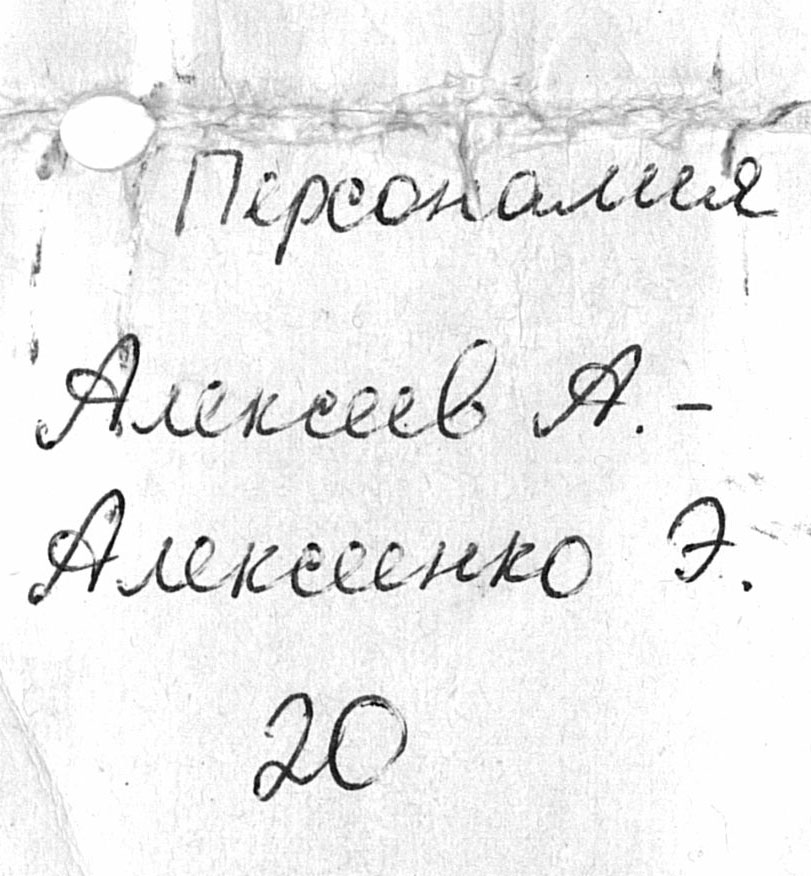 Персоналия
Алексеев А. -
Алексеенко Э.
20